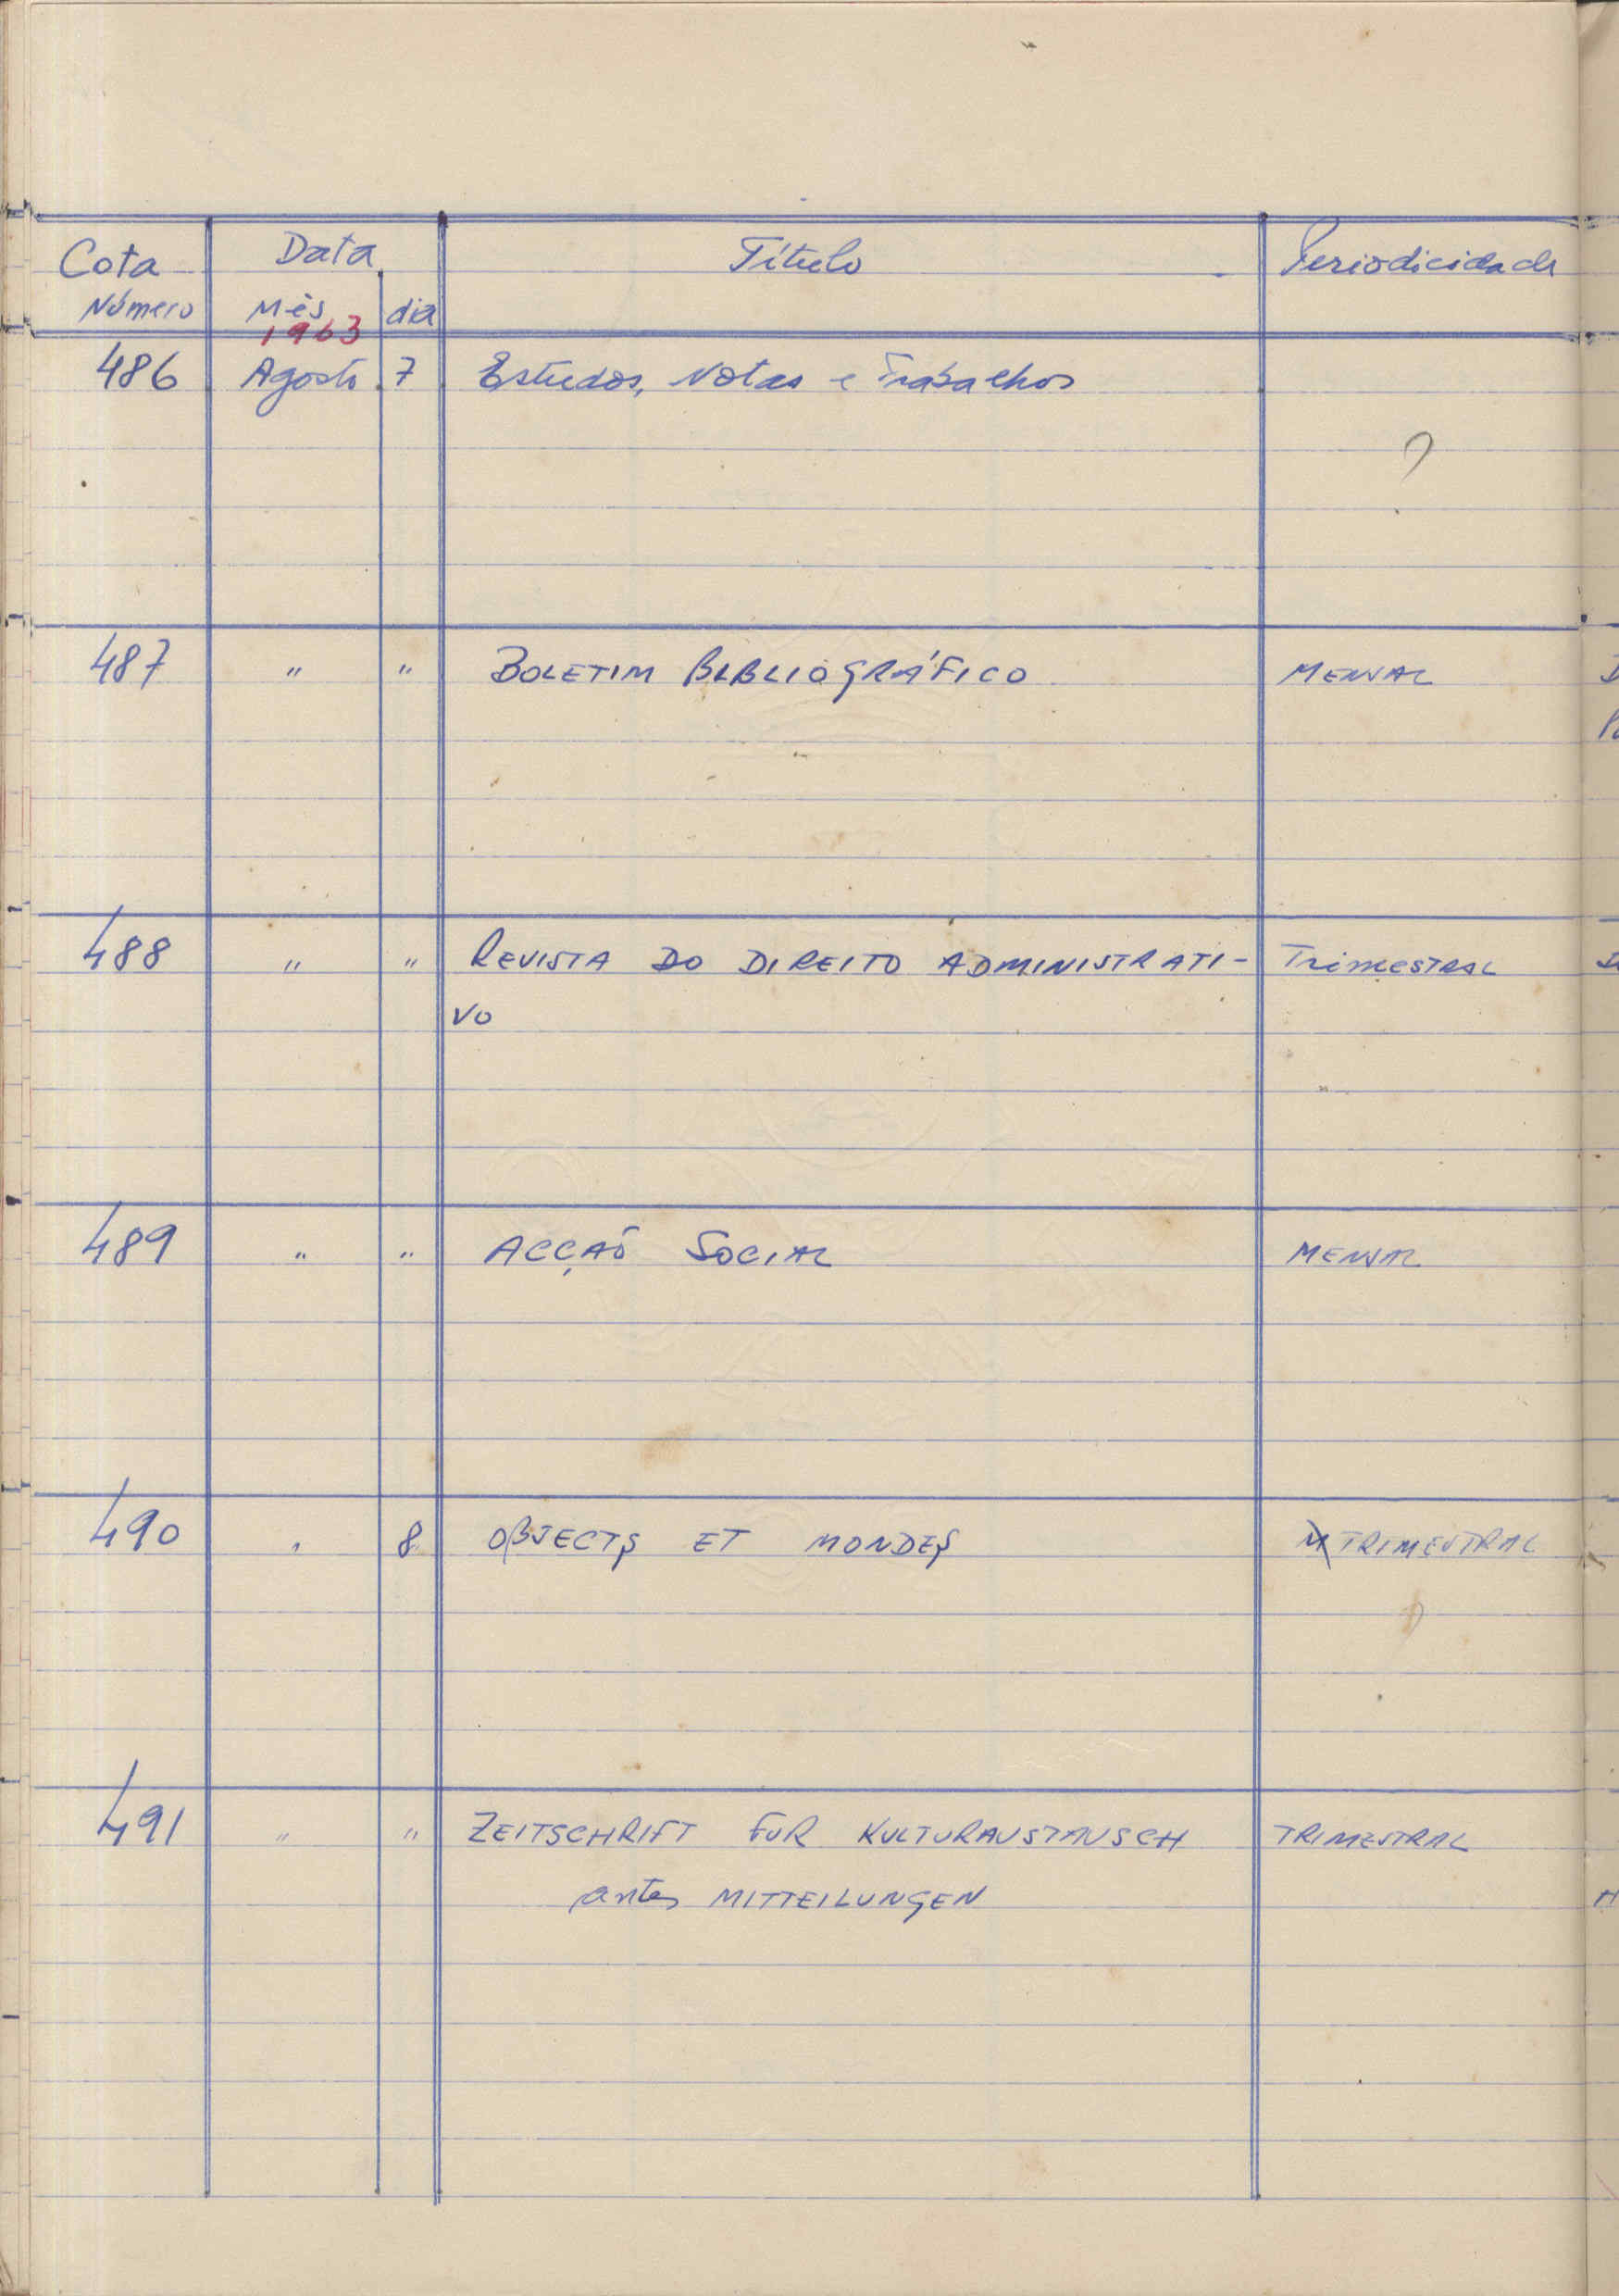 Cota Data Título Periodicidade
Número Mês dia
1963
486 Agosto 7 Estudos, Notas e Trabalhos
?
487 " " BOLETIM BIBLIOGRÁFICO MENSAL
488 " " REVISTA DO DIREITO ADMINISTRATI- TriMESTRAL
VO
489 " " ACÇÃO SOCIAL MENSAL
490 " 8 OBJECTS ET MONDES TRIMESTRAL
491 " " ZEITSCHRIFT FUR KULTURAUSTAUSCH TRIMESTRAL
antes MITTEILUNGEN